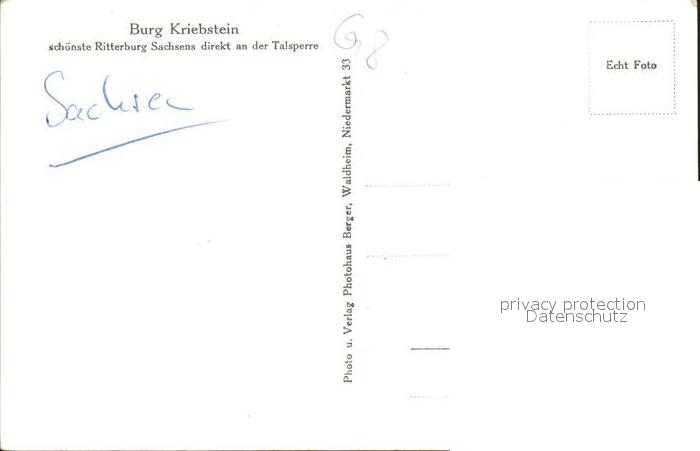 Burg Kriebstein
schönste Ritterburg Sachsens direkt an der Talsperre
Sachsen
G8
Photo u. Verlag Photohaus Berger, Waldheim, Niedermarkt 33
Echt Foto
privacy protection
Datenschutz